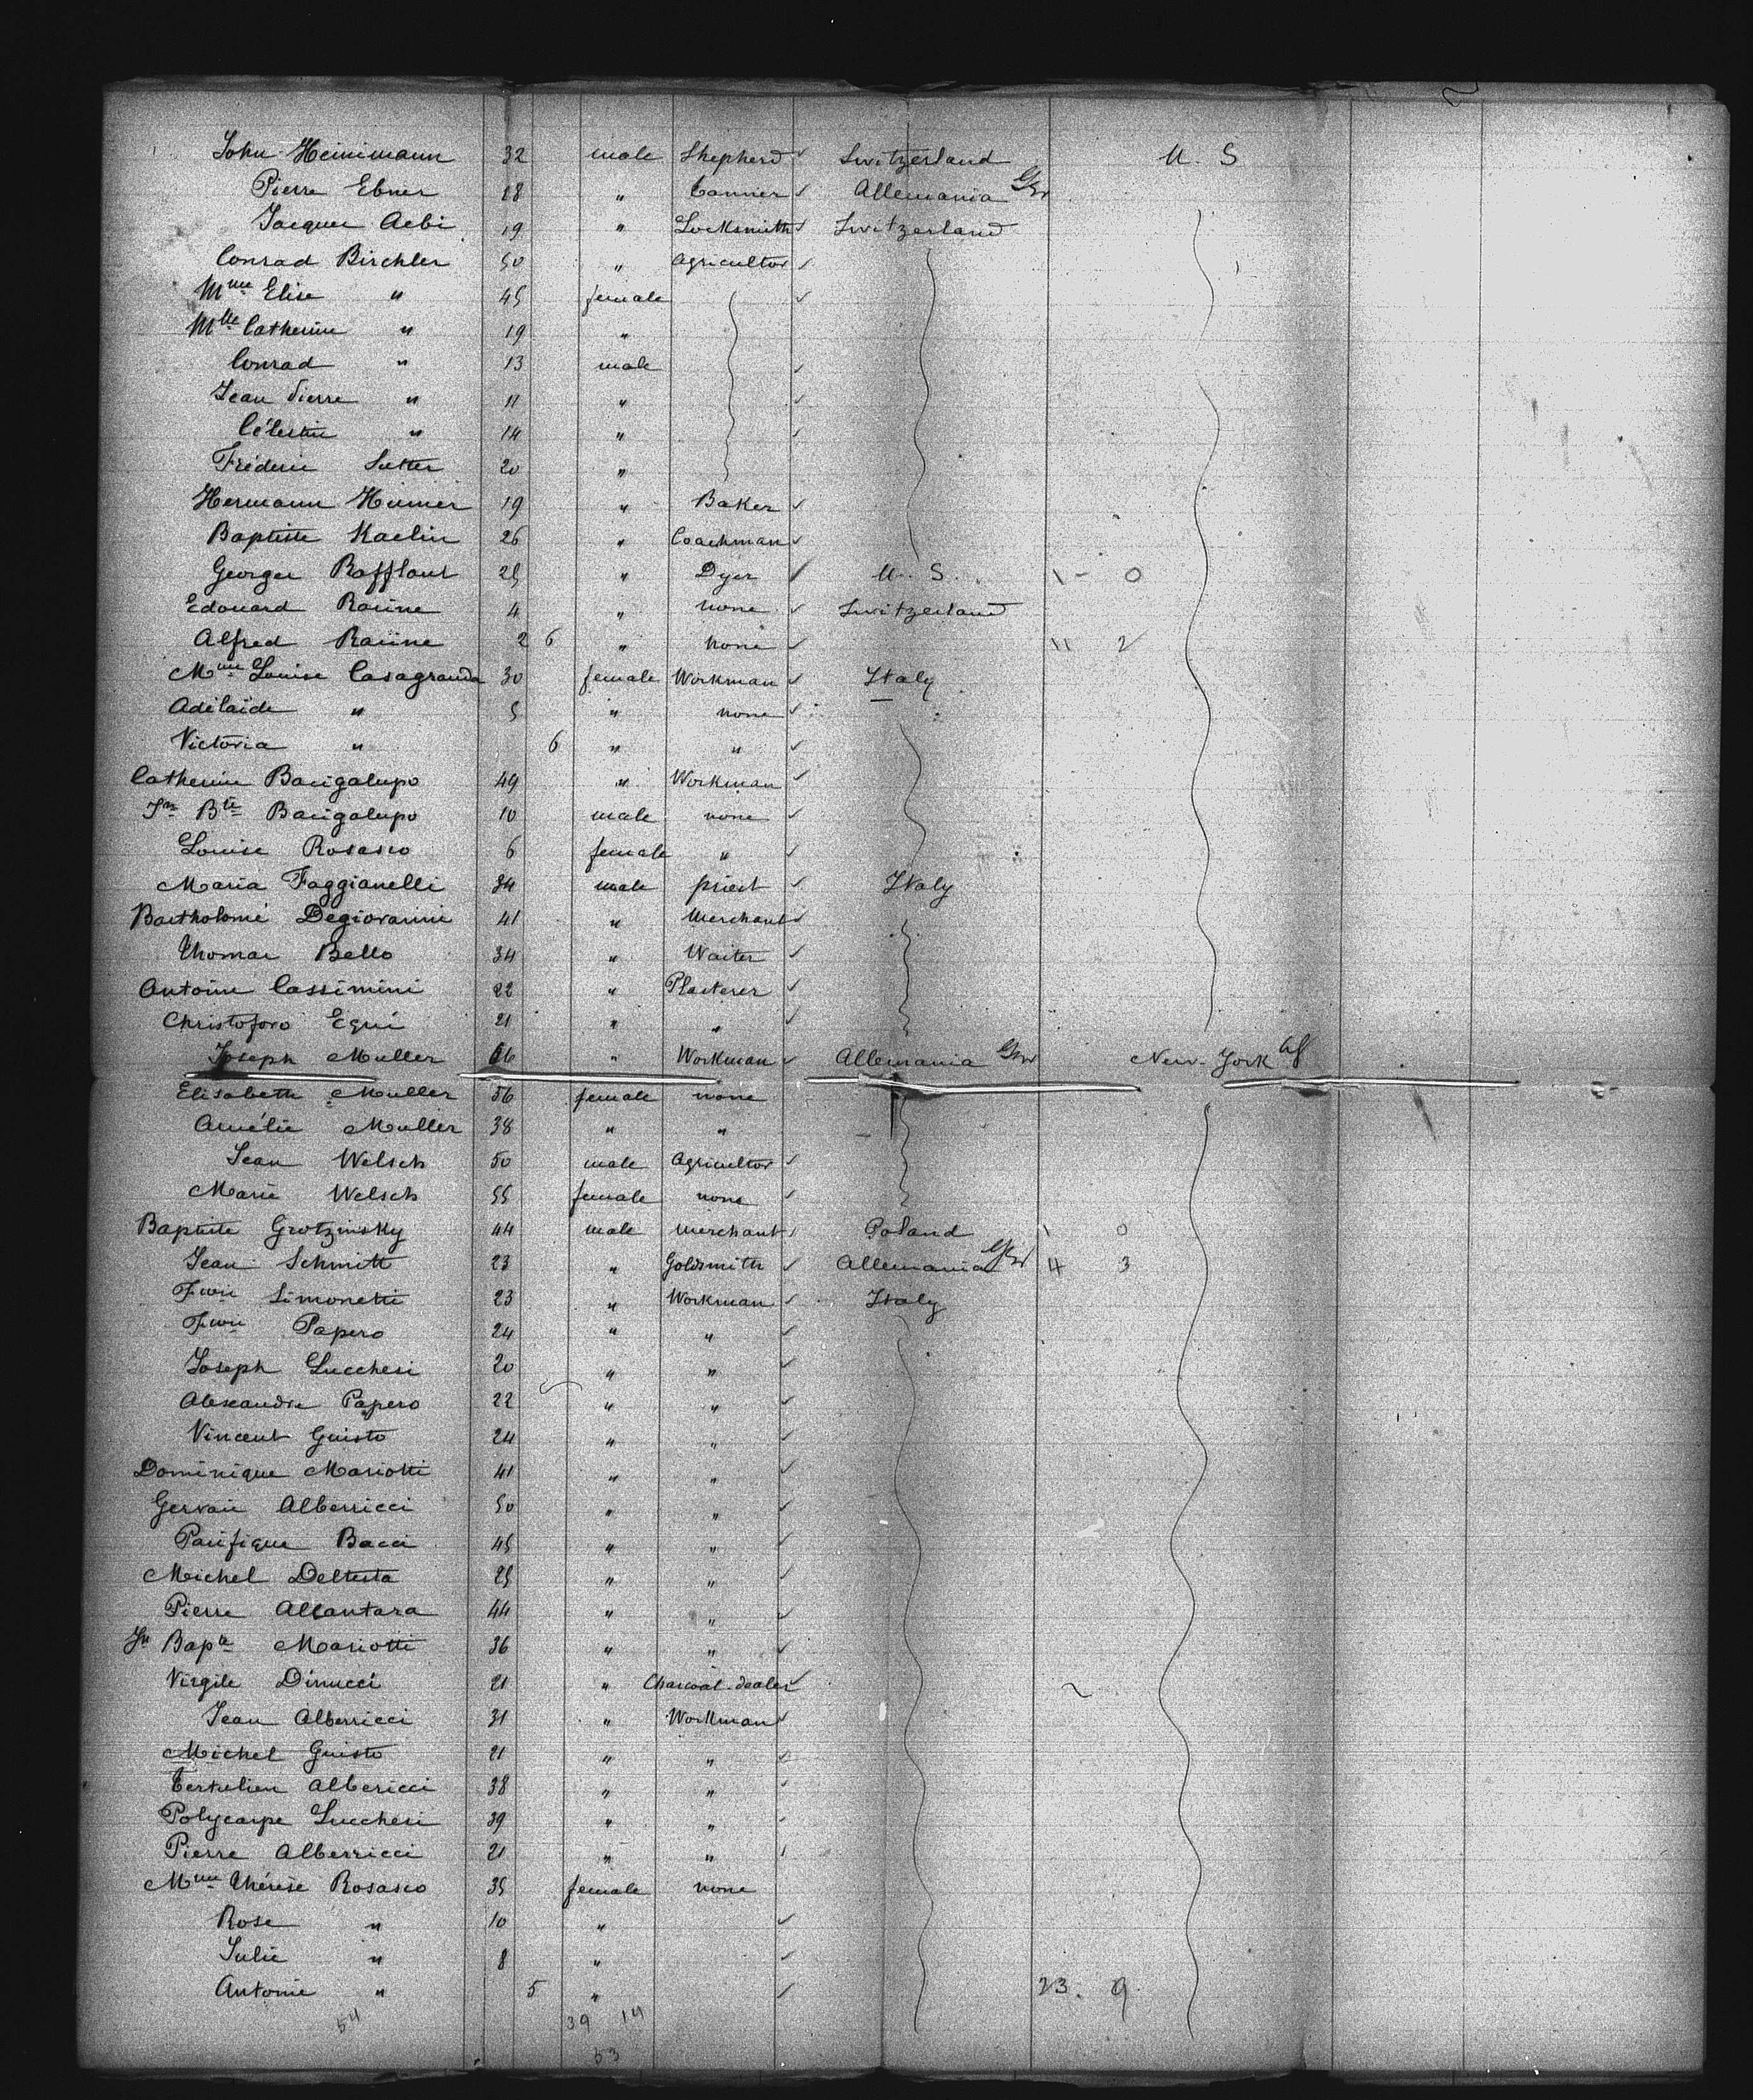 John Heinimann 32 male Shepherd Switzerland U. S
Pierre Ebner 28 " Tanner Allemania Ger
Jacques Aebi 19 " Locksmith Switzerland
Conrad Birchler 50 " Agricultor
Mme Elise " 45 female
Mlle Catherine " 19 "
Conrad " 13 male
Jean Pierre " 11 "
Célestin " 14 "
Fréderic Sutter 20 "
Hermann 19 " Baker
Baptiste Kaelin 26 " Coachman
Georges Rafflaut 25 " Dyer U. S. 1 - 0
Edouard Racine 4 " none Switzerland
Alfred Racine 2 6 " none 11 2
Mme Louise Casagranda 30 female Workman Italy
Adélaïde " 5 " none
Victoria " 6 " "
Catherine Bacigalupo 49 " Workman
Jn Bte Bacigalupo 10 male none
Louise Rosasco 6 female "
Maria Faggianelli 34 male priest Italy
Bartholomé Degiovanni 41 " Merchant
Thomas Bello 34 " Waiter
Antoine Cassimini 22 " Plasterer
Christoforo Equi 21 " "
Joseph Muller 66 " Workman Allemania Ger New-York
Elisabeth Muller 56 female none
Amélie Muller 38 " "
Jean Welsch 50 male Agricultor
Marie Welsch 55 female none
Baptiste Grotzinsky 44 male Merchant Poland 1 0
Jean Schmitt 23 " Goldsmith Allemania Ger 4 3
Fcois Simonetti 23 " Workman Italy
Fcois Papero 24 " "
Joseph Lucchesi 20 " "
Alexandre Papero 22 " "
Vincent Guisto 24 " "
Dominique Mariotti 41 " "
Gervais Alberricci 50 " "
Pacifique Bacci 45 " "
Michel Deltesta 25 " "
Pierre Alcantara 44 " "
Jn Bapte Mariotti 36 " "
Virgile Dinucci 21 " Charcoal-dealer
Jean Alberricci 31 " Workman
Michel Guisto 21 " "
Tertulien Albericci 38 " "
Polycarpe Lucchesi 39 " "
Pierre Alberricci 21 " "
Mme Thérèse Rosasco 35 female none
Rose " 10 "
Julie " 8 "
Antonie " 5 " 23. 9
54 39 14
53